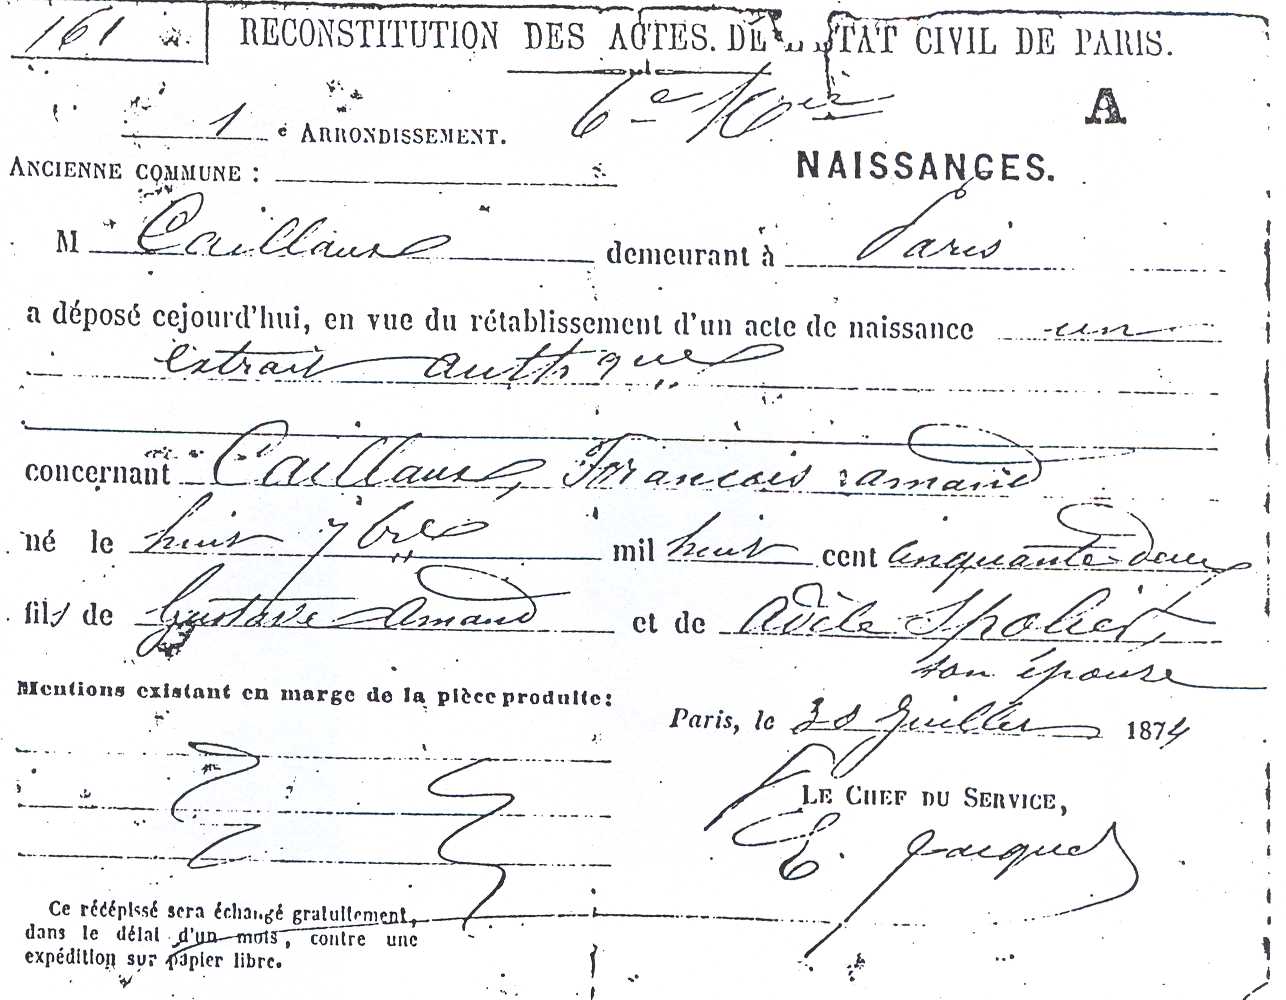 161
RECONSTITUTION DES ACTES. DE TAT CIVIL DE PARIS.
1 e ARRONDISSEMENT.
6e 10er
A
ANCIENNE COMMUNE :
NAISSANCES.
M Caillaux demeurant à Paris
a déposé cejourd'hui, en vue du rétablissement d'un acte de naissance un
extrait autthque
concernant Caillaux, François amand
né le huit 7bre mil huit cent cinquante deux
fils de Gustave Amand et de Adèle Spolier,
son épouse
Mentions existant en marge de la pièce produite:
Paris, le 30 Juillet 1874
LE CHEF DU SERVICE,
E. Jacques
Ce récépissé sera échangé gratuitement,
dans le délai d'un mois, contre une
expédition sur papier libre.